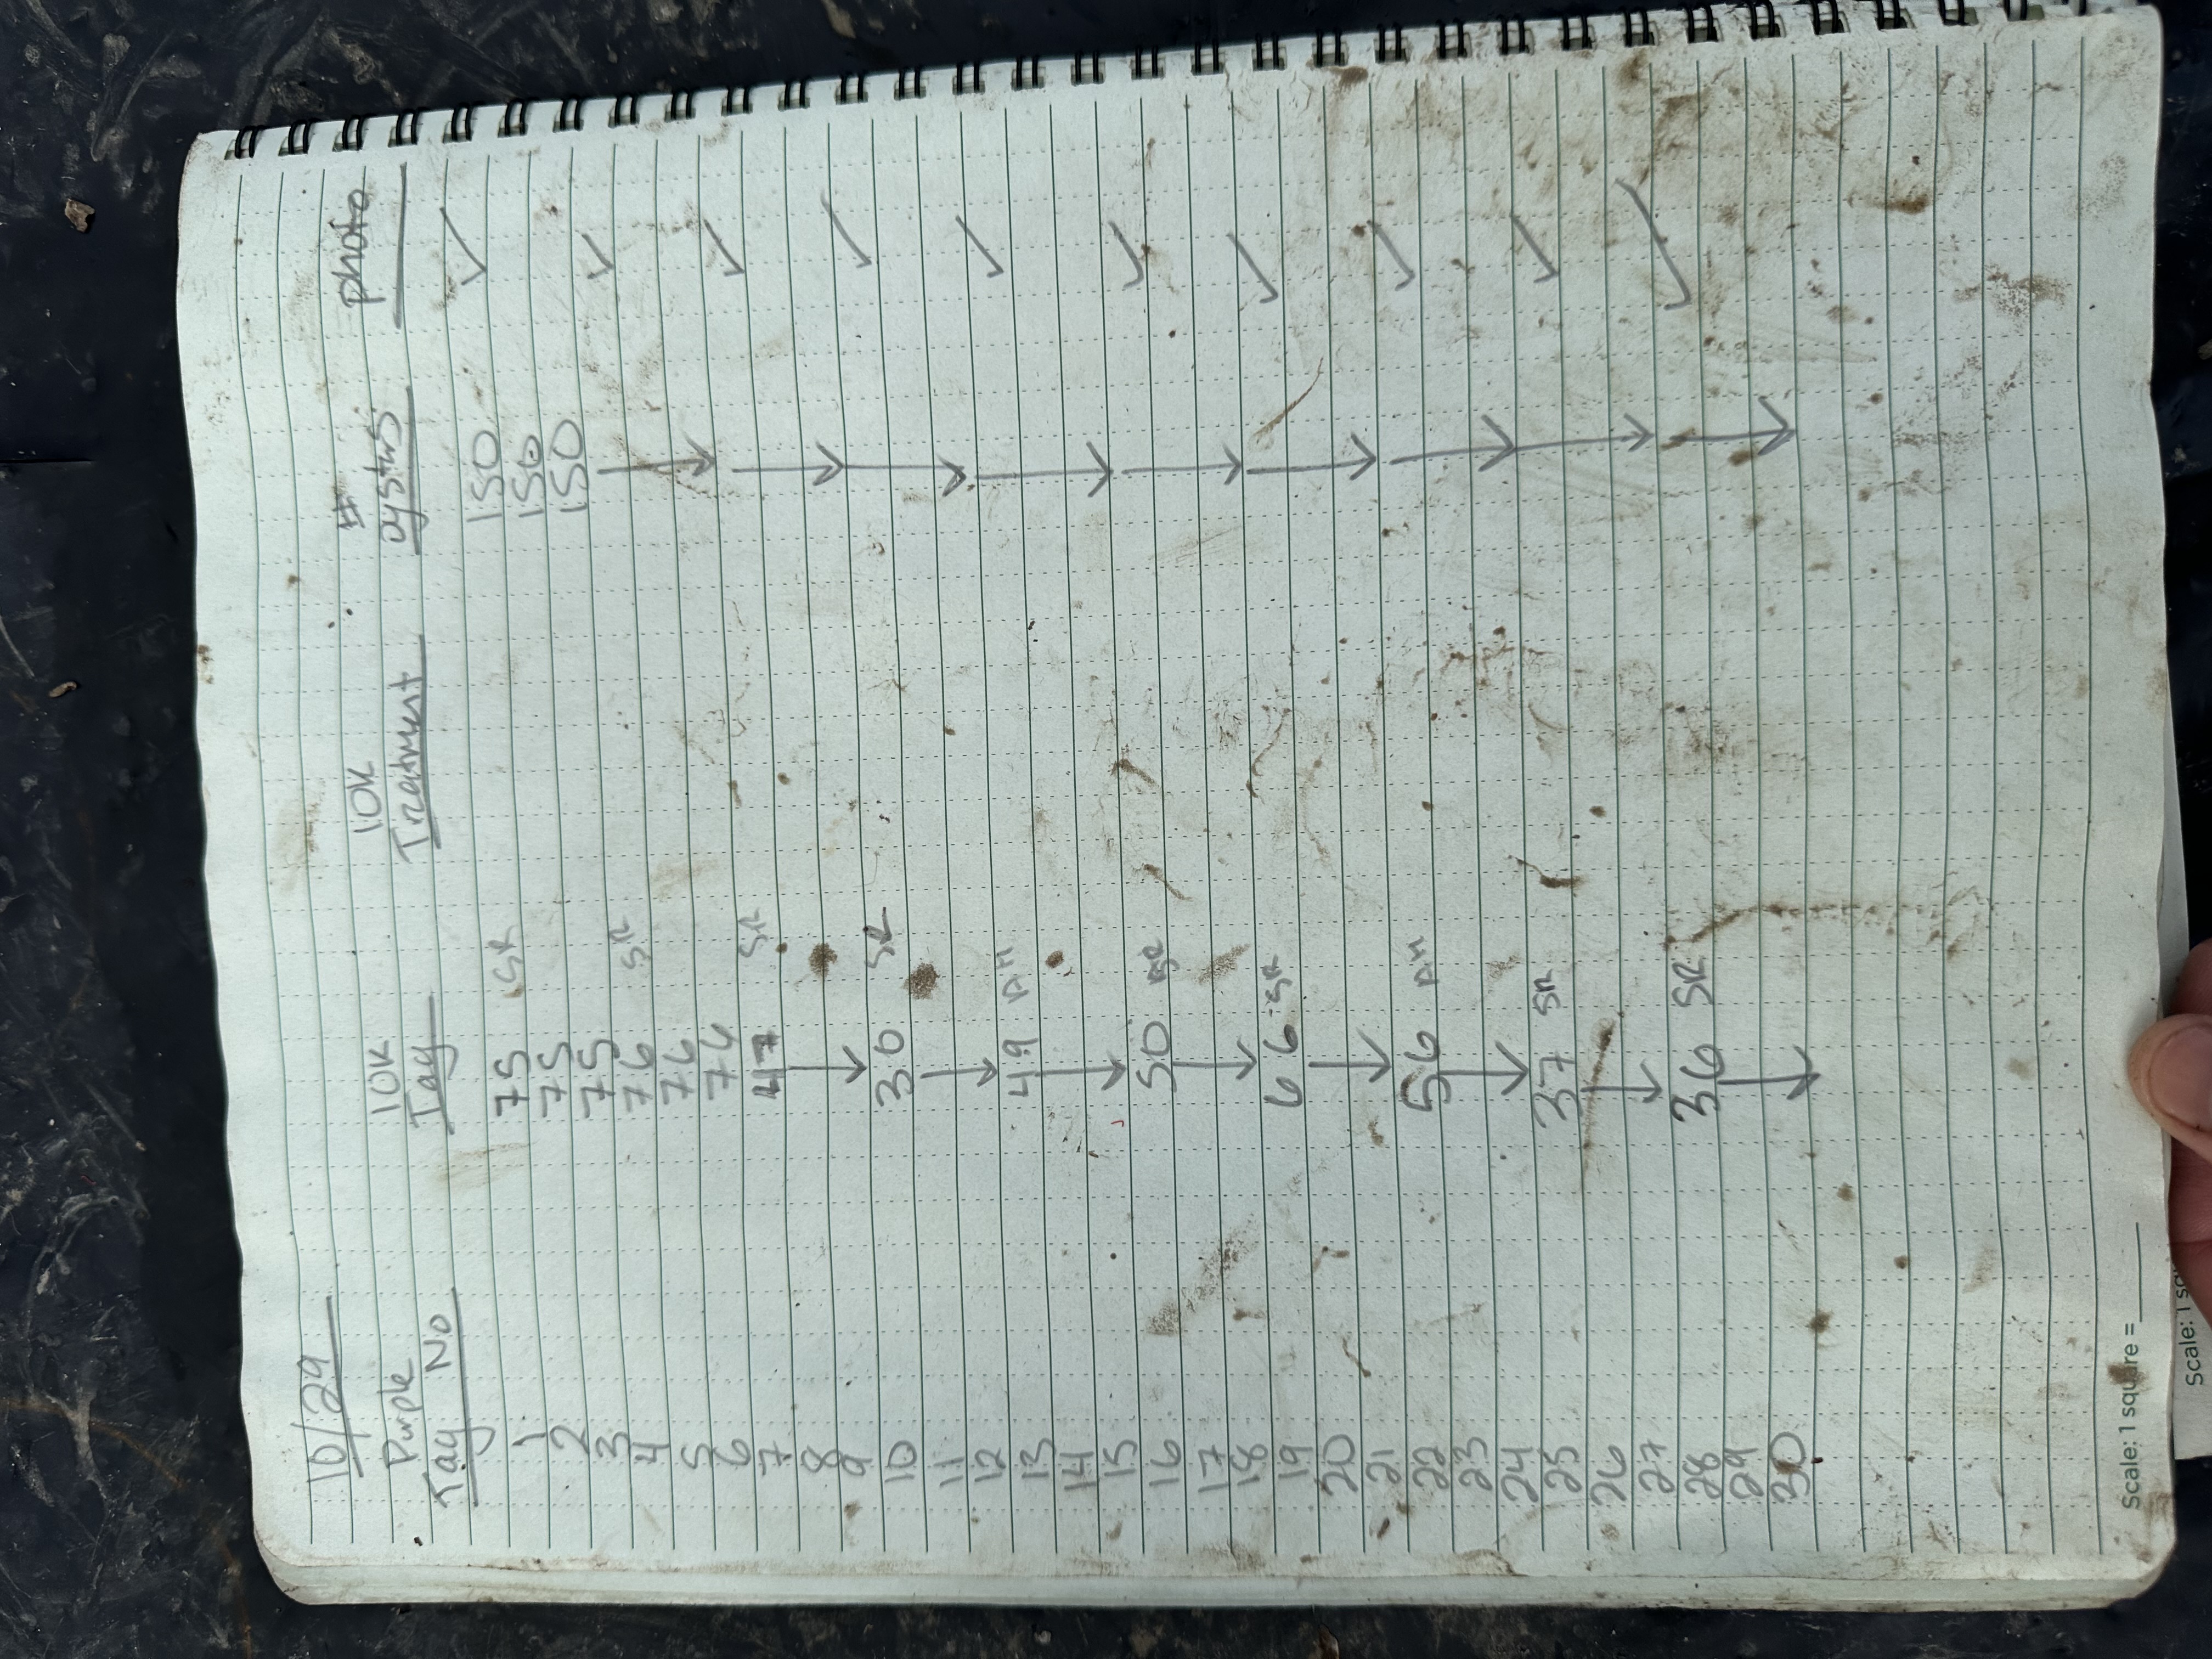 10/29
Purple 10K 10K # photo
Tag No Tag Treatment oysters
1 75 SR 150 ✓
2 75 150
3 75 150
4 76 SR ↓ ✓
5 76
6 76
7 47 SR ↓ ✓
8 ↓
9
10 30 SR ↓ ✓
11 ↓
12
13 49 AH ↓ ✓
14 ↓
15
16 50 SR ↓ ✓
17 ↓
18
19 66 SR ↓ ✓
20 ↓
21
22 56 AH ↓ ✓
23 ↓
24
25 37 SR ↓ ✓
26 ↓
27
28 36 SR ↓ ✓
29 ↓
30
Scale: 1 square =
Scale: 1 squ